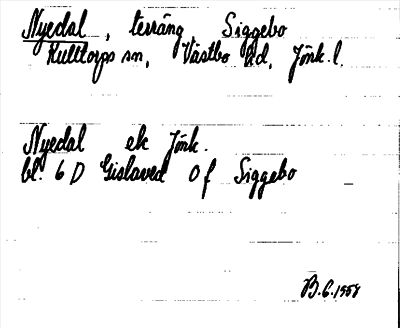 Nyedal, terräng, Siggebo
Kulltorps sn, Västbo hd, Jönk. l.
Nyedal ek Jönk.
bl. 6 D Gislaved 0 f Siggebo
B.G. 1958